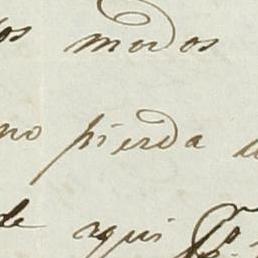 os modos
no pierda
de aqui